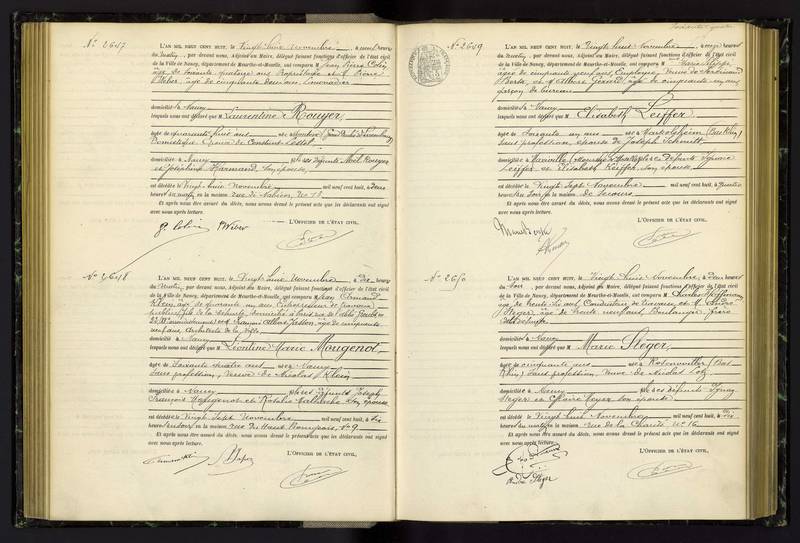 N° 2647
L'AN MIL NEUF CENT HUIT, le Vingt huit Novembre, à onze heures
du Matin, par devant nous, Adjoint au Maire, délégué faisant fonctions d'officier de l'état civil
de la Ville de Nancy, département de Meurthe-et-Moselle, ont comparu M Jean Pierre Colin
âgé de soixante quatorze ans Propriétaire et Pierre
Weber, âgé de cinquante deux ans,
domicilié à Nancy
lesquels nous ont déclaré que M Laurentine Rouyer
âgée de quarante huit ans née à
Domestique, épouse de Constant
domiciliée à Nancy fille des défunts Noël Rouyer
et Joséphine Harmand, son épouse
est décédée le Vingt huit Novembre mil neuf cent huit, à deux
heures du matin en la maison rue de
Et après nous être assuré du décès, nous avons dressé le présent acte que les déclarants ont signé
avec nous après lecture.
L'OFFICIER DE L'ÉTAT CIVIL,
Colin PWeber
N° 2648
L'AN MIL NEUF CENT HUIT, le Vingt huit Novembre, à dix heures
du Matin, par devant nous, Adjoint au Maire, délégué faisant fonctions d'officier de l'état civil
de la Ville de Nancy, département de Meurthe-et-Moselle, ont comparu M Jean Armand
Klein, âgé de quarante un ans, Entrepreneur de travaux
publics, fils de la défunte, domicilié à Paris
et François Albert Jasson, âgé de cinquante
neuf ans, Architecte de la Ville
domicilié à Nancy
lesquels nous ont déclaré que M Léontine Marie Mougenot
âgée de Soixante quatre ans née à Nancy
Sans profession, Veuve de Nicolas Klein
domiciliée à Nancy fille des défunts Joseph
François Mougenot et Rosalie son épouse
est décédée le Vingt sept Novembre mil neuf cent huit, à dix
heures du soir en la maison rue du Haut Bourgeois, N° 9
Et après nous être assuré du décès, nous avons dressé le présent acte que les déclarants ont signé
avec nous après lecture.
L'OFFICIER DE L'ÉTAT CIVIL,
N° 2649
L'AN MIL NEUF CENT HUIT, le Vingt huit Novembre, à onze heures
du Matin, par devant nous, Adjoint au Maire, délégué faisant fonctions d'officier de l'état civil
de la Ville de Nancy, département de Meurthe-et-Moselle, ont comparu M Marie
âgée de cinquante neuf ans, Employée, Veuve de Ferdinand
et Albert Gérard, âgé de cinquante un ans
garçon de bureau
domicilié à Nancy
lesquels nous ont déclaré que M Elisabeth Leiffer
âgée de Soixante un ans née à Markolsheim (Bas Rhin)
Sans profession, épouse de Joseph Schmitt
domiciliée à (Meurthe et Moselle) fille de défunts Ignace
Leiffer et Elisabeth Keiffer, son épouse
est décédée le Vingt Sept Novembre mil neuf cent huit, à quatre
heures du soir en la maison de Secours
Et après nous être assuré du décès, nous avons dressé le présent acte que les déclarants ont signé
avec nous après lecture.
L'OFFICIER DE L'ÉTAT CIVIL,
N° 2650
L'AN MIL NEUF CENT HUIT, le Vingt huit Novembre, à deux heures
du Soir, par devant nous, Adjoint au Maire, délégué faisant fonctions d'officier de l'état civil
de la Ville de Nancy, département de Meurthe-et-Moselle, ont comparu M Charles
âgé de trente six ans, Conducteur de travaux, et M André
Steger, âgé de trente neuf ans, Boulanger, frère
de la défunte
domicilié à Nancy
lesquels nous ont déclaré que M Marie Steger
âgée de cinquante ans née à (Bas
Rhin) Sans profession, Veuve de Nicolas Lotz
domiciliée à Nancy fille des défunts Ignace
Steger et Claire son épouse
est décédée le Vingt huit Novembre mil neuf cent huit, à dix
heures du matin en la maison rue de la Charité N° 16
Et après nous être assuré du décès, nous avons dressé le présent acte que les déclarants ont signé
avec nous après lecture.
L'OFFICIER DE L'ÉTAT CIVIL,
André Steger